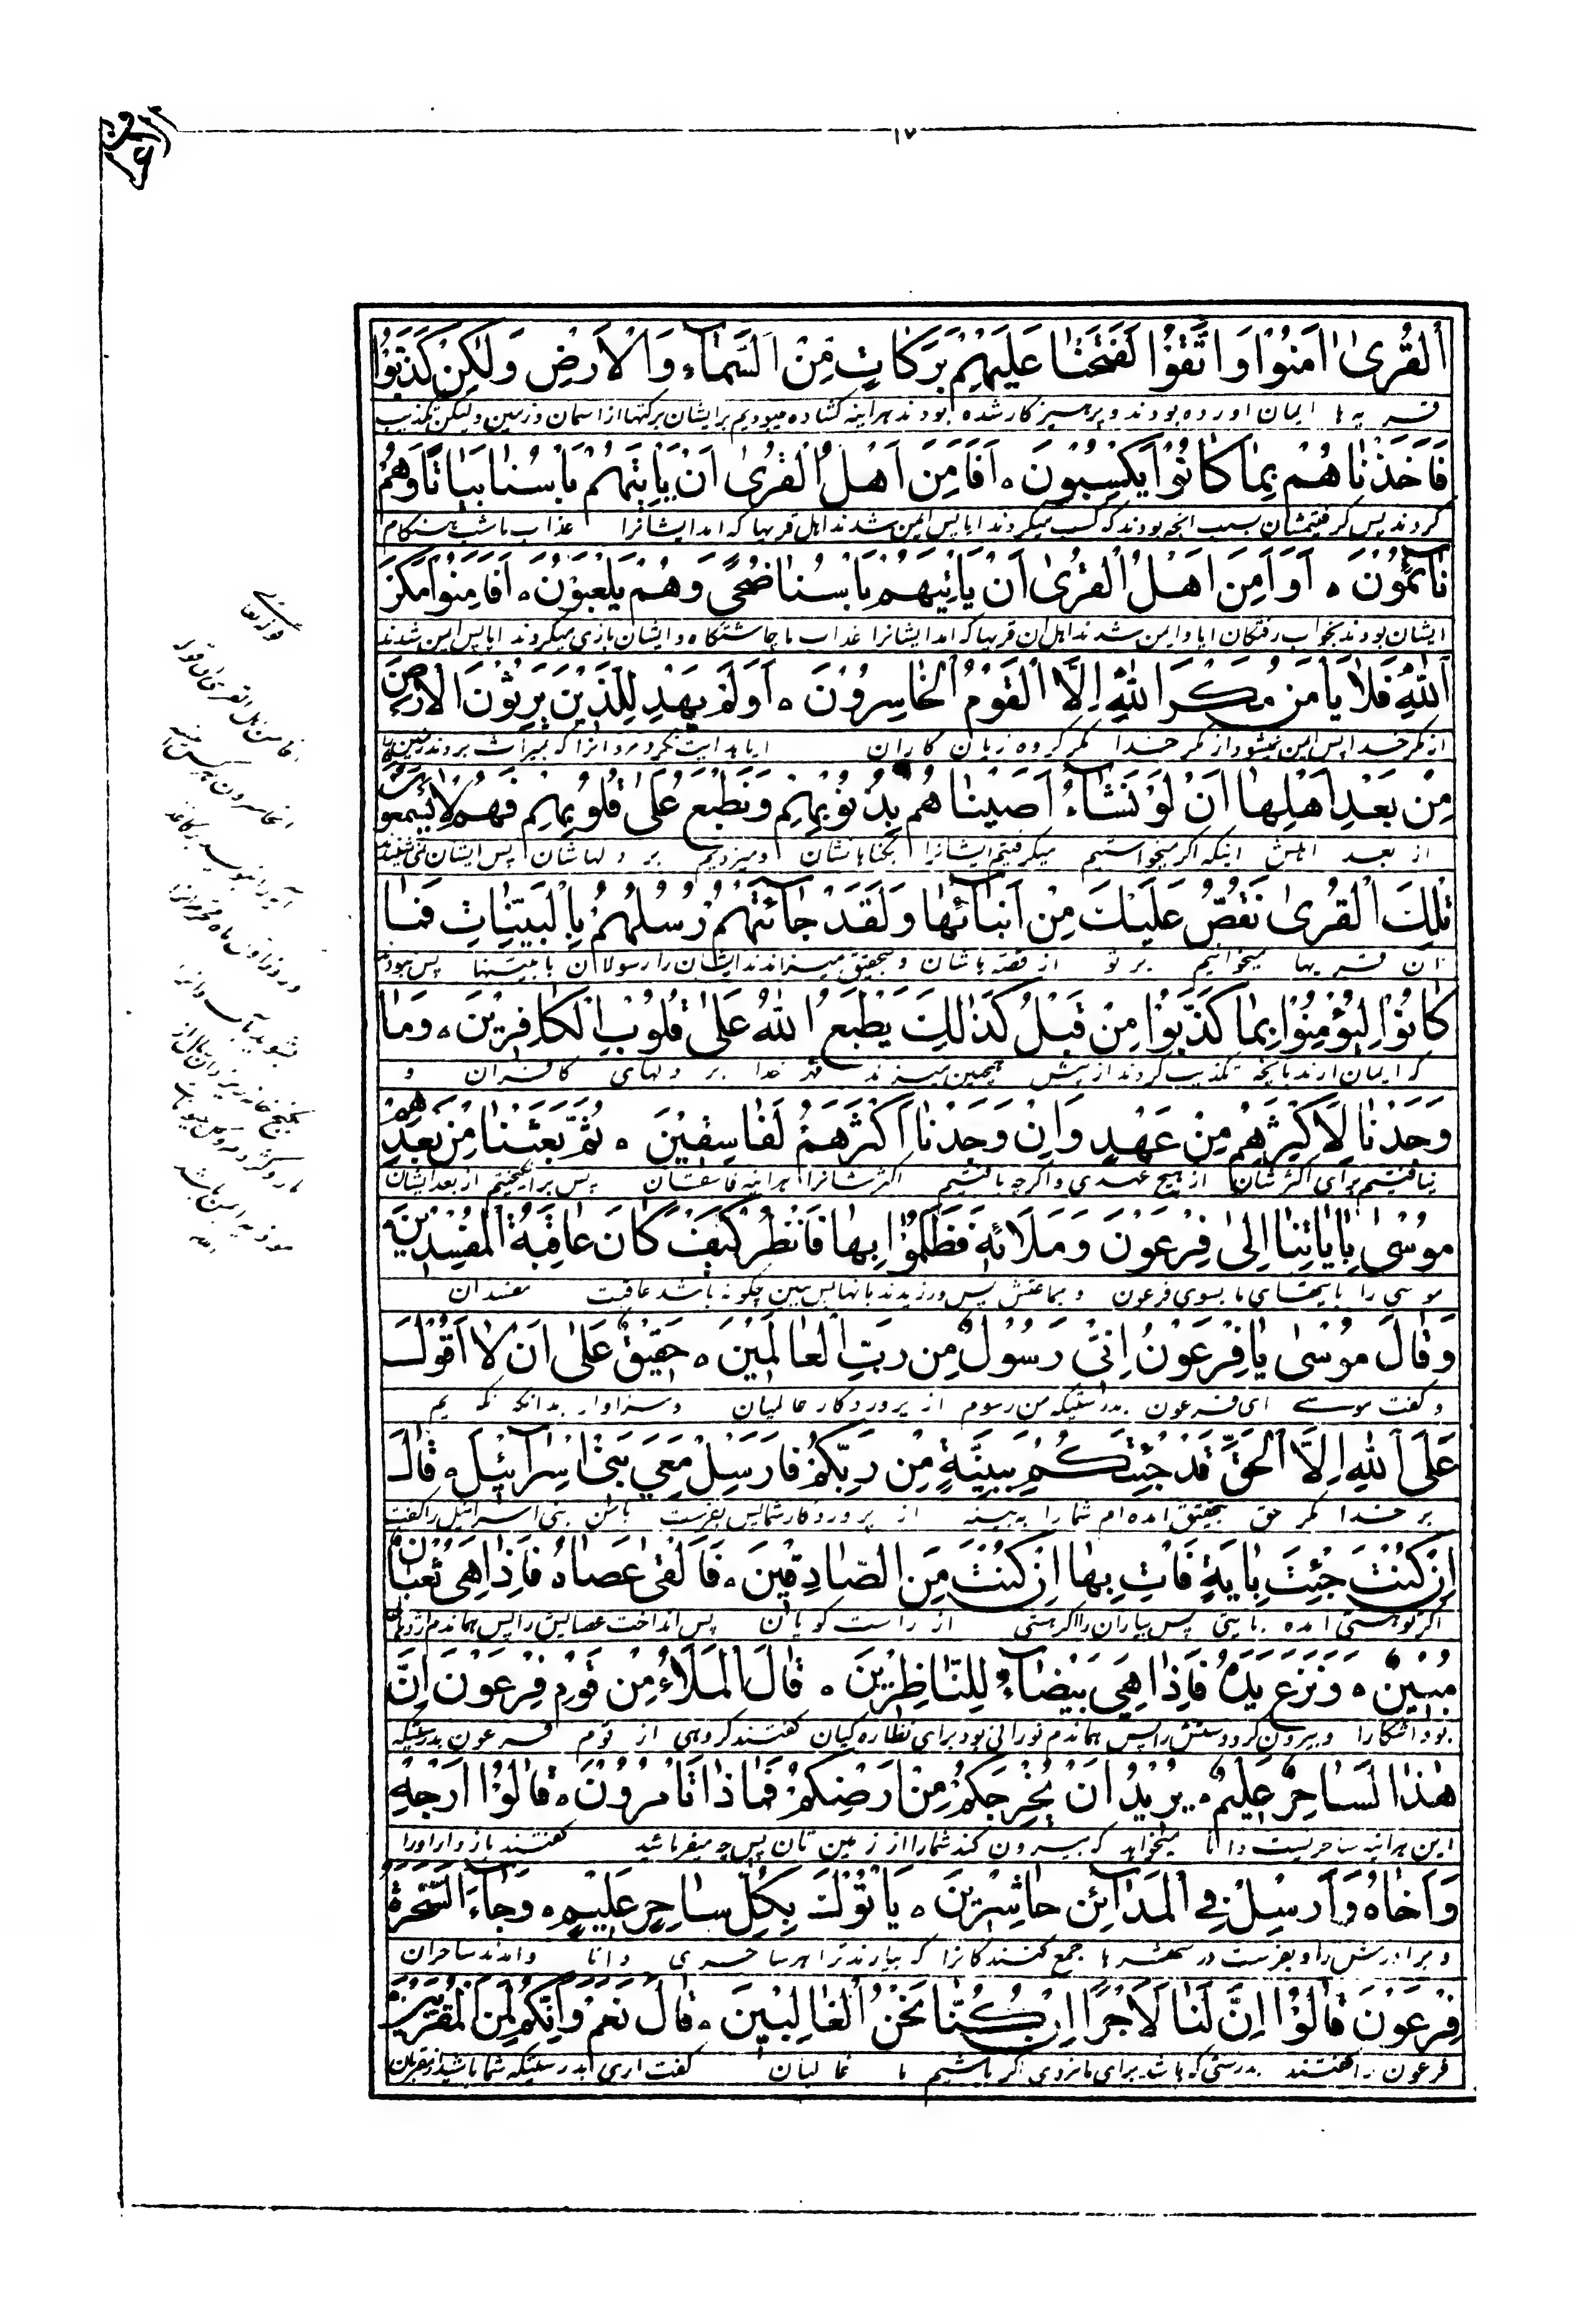 ١٧
الاعراف
اَلْقُرىٰ اٰمَنُوْا وَاتَّقَوْا لَفَتَحْنٰا عَلَيْهِمْ بَرَكٰاتٍ مِنَ السَّمٰآءِ وَالْاَرْضِ وَلٰكِنْ كَذَّبُوْا
قریه ها ایمان اورده بودند و پرهیز کار شده بودند هراینه کشاده میبودیم برایشان برکتها از اسمان و زمین ولیکن تکذیب
فَاَخَذْنٰاهُمْ بِمٰا كٰانُوْا يَكْسِبُوْنَ ٥ اَفَاَمِنَ اَهْلُ الْقُرىٰ اَنْ يَاْتِيَهُمْ بَاْسُنٰا بَيٰاتًا وَهُمْ
کردند پس کرفتیمشان بسبب انچه بودند که کسب میکردند ایا پس ایمن شدند اهل قریها که امد ایشانرا عذاب ما شب هنکام
نٰآئِمُوْنَ ٥ اَوَاَمِنَ اَهْلُ الْقُرىٰ اَنْ يَاْتِيَهُمْ بَاْسُنٰا ضُحًى وَهُمْ يَلْعَبُوْنَ ٥ اَفَاَمِنُوْا مَكْرَ
ایشان بودند بخواب رفتکان ایا و ایمن شدند اهل ان قریها که امد ایشانرا عذاب ما چاشتکاه و ایشان بازی میکردند ایا پس ایمن شدند
اَللّٰهِ فَلٰا يَاْمَنُ مَكْرَ اللّٰهِ اِلَّا الْقَوْمُ الْخٰاسِرُوْنَ ٥ اَوَلَمْ يَهْدِ لِلَّذِيْنَ يَرِثُوْنَ الْاَرْضَ
از مکر خدا پس ایمن نمیشود از مکر خدا مکر کروه زیان کاران ایا هدایت نکرد مر انرا که بمیراث بردند زمین را
مِنْ بَعْدِ اَهْلِهٰا اَنْ لَوْ نَشٰآءُ اَصَبْنٰاهُمْ بِذُنُوْبِهِمْ وَنَطْبَعُ عَلىٰ قُلُوْبِهِمْ فَهُمْ لٰا يَسْمَعُوْنَ
از بعد اهلش اینکه اکر میخواستیم میکرفتیم ایشانرا بکناهانشان و میزدیم بر دلهاشان پس ایشان نمیشنیدند
تِلْكَ الْقُرىٰ نَقُصُّ عَلَيْكَ مِنْ اَنْبٰآئِهٰا وَلَقَدْ جٰآئَتْهُمْ رُسُلُهُمْ بِالْبَيِّنٰاتِ فَمٰا
ان قریها میخوانیم بر تو از قصه هاشان و بتحقیق امدند ایشان را رسولان با بینتها پس نبودند
كٰانُوْا لِيُؤْمِنُوْا بِمٰا كَذَّبُوْا مِنْ قَبْلُ كَذٰلِكَ يَطْبَعُ اللّٰهُ عَلىٰ قُلُوْبِ الْكٰافِرِيْنَ ٥ وَمٰا
که ایمان ارند بانچه تکذیب کردند از پیش همچنین میزند مهر خدا بر دلهای کافران و
وَجَدْنٰا لِاَكْثَرِهِمْ مِنْ عَهْدٍ وَاِنْ وَجَدْنٰا اَكْثَرَهُمْ لَفٰاسِقِيْنَ ٥ ثُمَّ بَعَثْنٰا مِنْ بَعْدِهِمْ
نیافتیم برای اکثرشان از هیچ عهدی و اکرچه یافتیم اکثرشانرا هراینه فاسقان پس برانکیختیم از بعد ایشان
مُوْسٰى بِاٰيٰاتِنٰا اِلىٰ فِرْعَوْنَ وَمَلَائِهٖ فَظَلَمُوْا بِهٰا فَانْظُرْ كَيْفَ كٰانَ عٰاقِبَةُ الْمُفْسِدِيْنَ
موسی را بایتهای ما بسوی فرعون و جماعتش پس ورزیدند بانها پس ببین چکونه باشد عاقبت مفسدان
وَقٰالَ مُوْسٰى يٰا فِرْعَوْنُ اِنّٖى رَسُوْلٌ مِنْ رَبِّ الْعٰالَمِيْنَ ٥ حَقِيْقٌ عَلىٰ اَنْ لٰا اَقُوْلَ
و کفت موسے ای فرعون بدرستیکه من رسولم از پروردکار عالمیان و سزاوار بدانکه نکویم
عَلَى اللّٰهِ اِلَّا الْحَقَّ قَدْ جِئْتُكُمْ بِبَيِّنَةٍ مِنْ رَبِّكُمْ فَاَرْسِلْ مَعِيَ بَنٖى اِسْرٰآئِيْلَ ٥ قٰالَ
بر خدا مکر حق بتحقیق امده ام شما را به بینه از پروردکار شما پس بفرست با من بنی اسرائیل را کفت
اِنْ كُنْتَ جِئْتَ بِاٰيَةٍ فَاْتِ بِهٰا اِنْ كُنْتَ مِنَ الصّٰادِقِيْنَ ٥ فَاَلْقىٰ عَصٰاهُ فَاِذٰا هِىَ ثُعْبٰانٌ
اکر تو هستی امده بایتی پس بیار ان را اکر هستی از راست کویان پس انداخت عصایش را پس هماندم اژدهائی
مُبِيْنٌ ٥ وَنَزَعَ يَدَهُ فَاِذٰا هِىَ بَيْضٰآءُ لِلنّٰاظِرِيْنَ ٥ قٰالَ الْمَلَاءُ مِنْ قَوْمِ فِرْعَوْنَ اِنَّ
بود اشکارا و بیرون کرد دستش را پس هماندم نورانی بود برای نظاره کیان کفتند کروهی از قوم فرعون بدرستیکه
هٰذٰا لَسٰاحِرٌ عَلِيْمٌ ٥ يُرِيْدُ اَنْ يُخْرِجَكُمْ مِنْ اَرْضِكُمْ فَمٰاذٰا تَاْمُرُوْنَ ٥ قٰالُوْا اَرْجِهْ
این هراینه ساحریست دانا میخواهد که بیرون کند شما را از زمین تان پس چه میفرمائید کفتند باز دار او را
وَاَخٰاهُ وَاَرْسِلْ فِى الْمَدٰآئِنِ حٰاشِرِيْنَ ٥ يَاْتُوْكَ بِكُلِّ سٰاحِرٍ عَلِيْمٍ ٥ وَجٰآءَ السَّحَرَةُ
و برادرش را و بفرست در شهرها جمع کنندکانرا که بیارند ترا هر ساحری دانا و امدند ساحران
فِرْعَوْنَ قٰالُوْا اِنَّ لَنٰا لَاَجْرًا اِنْ كُنّٰا نَحْنُ الْغٰالِبِيْنَ ٥ قٰالَ نَعَمْ وَاِنَّكُمْ لَمِنَ الْمُقَرَّبِيْنَ
فرعون را کفتند بدرستی که باشد برای ما مزدی اکر باشیم ما غالبان کفت اری بدرستیکه شما باشید از مقربان